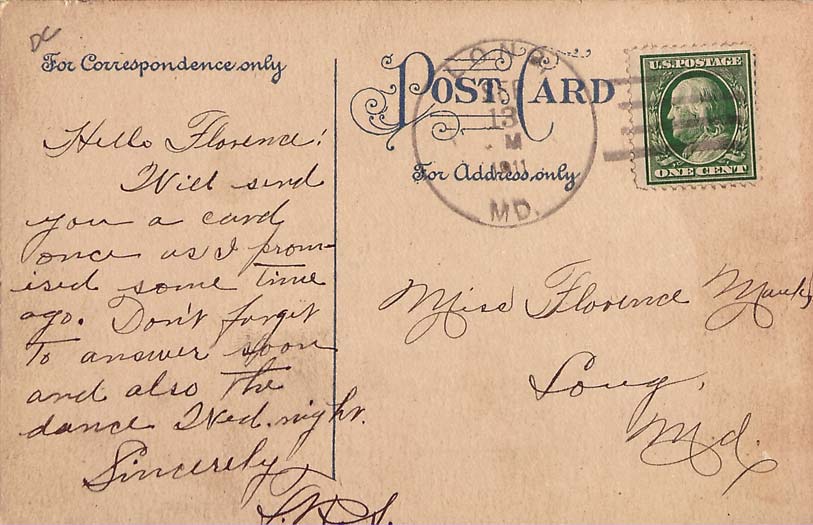 DC
For Correspondence only
Hello Florence!
Will send
you a card
once as I prom-
ised some time
ago. Don't forget
to answer soon
and also the
dance Wed. night.
Sincerely
POST CARD
For Address only
LONG
SEP
13
M
1911
MD.
U.S. POSTAGE
ONE CENT
Miss Florence
Long,
Md.